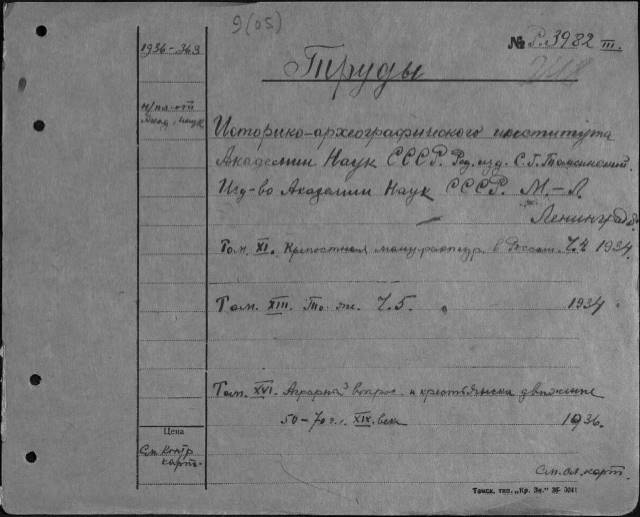 9(05)
1936-363
№ Р.3982 III.
Труды
Акад. наук
Историко-археографического института
Академии Наук СССР. Ред. изд. С.Г. Томсинский.
Изд-во Академии Наук СССР. М.-Л.
Ленинград
Том. XI. Крепостная мануфактура в России. Ч. 4 1934.
Том. XIII. То же. Ч. 5. 1934
Том. XVI. Аграрный вопрос и крестьянское движение
50-70 г.г. XIX. века 1936.
Цена
См. контр
карт.
См. сл. карт.
Томск. тип. „Кр. Зн."